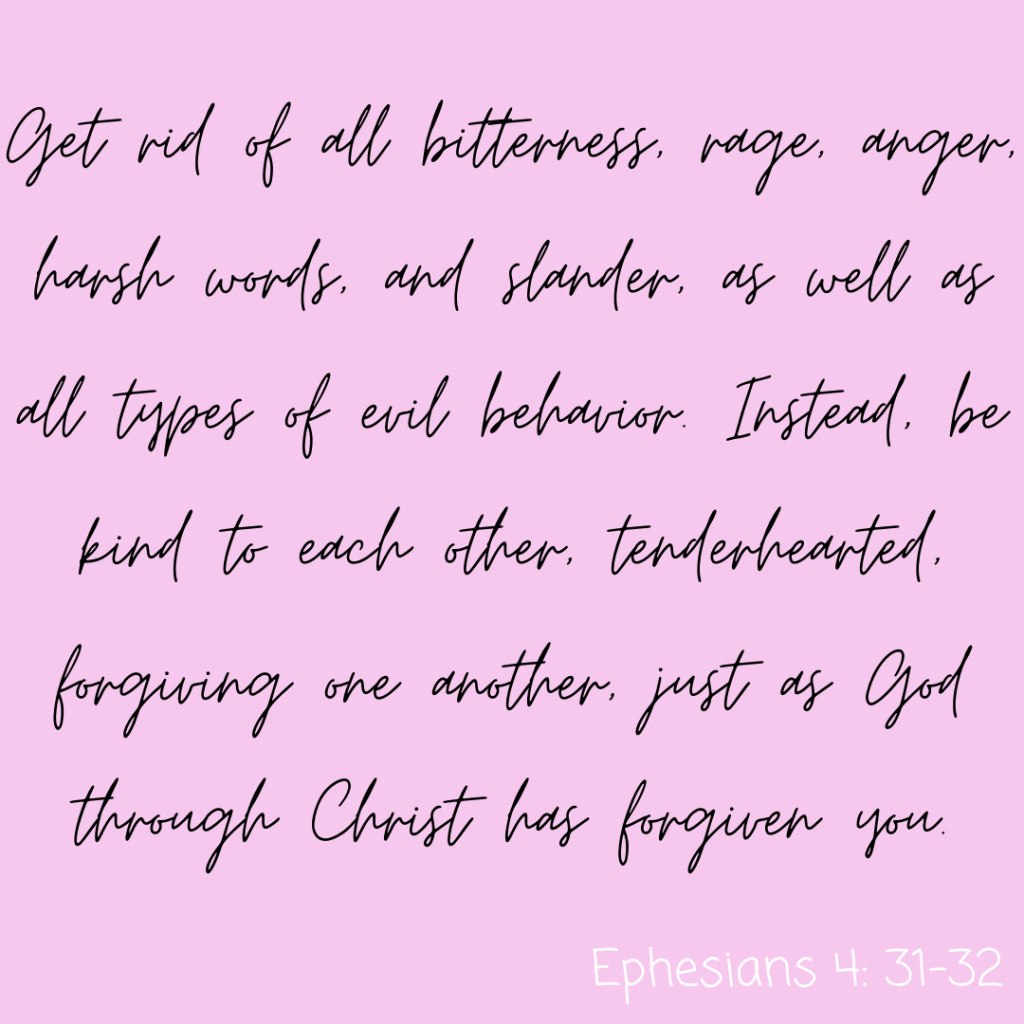 Get rid of all bitterness, rage, anger,
harsh words, and slander, as well as
all types of evil behavior. Instead, be
kind to each other, tenderhearted,
forgiving one another, just as God
through Christ has forgiven you.
Ephesians 4: 31-32